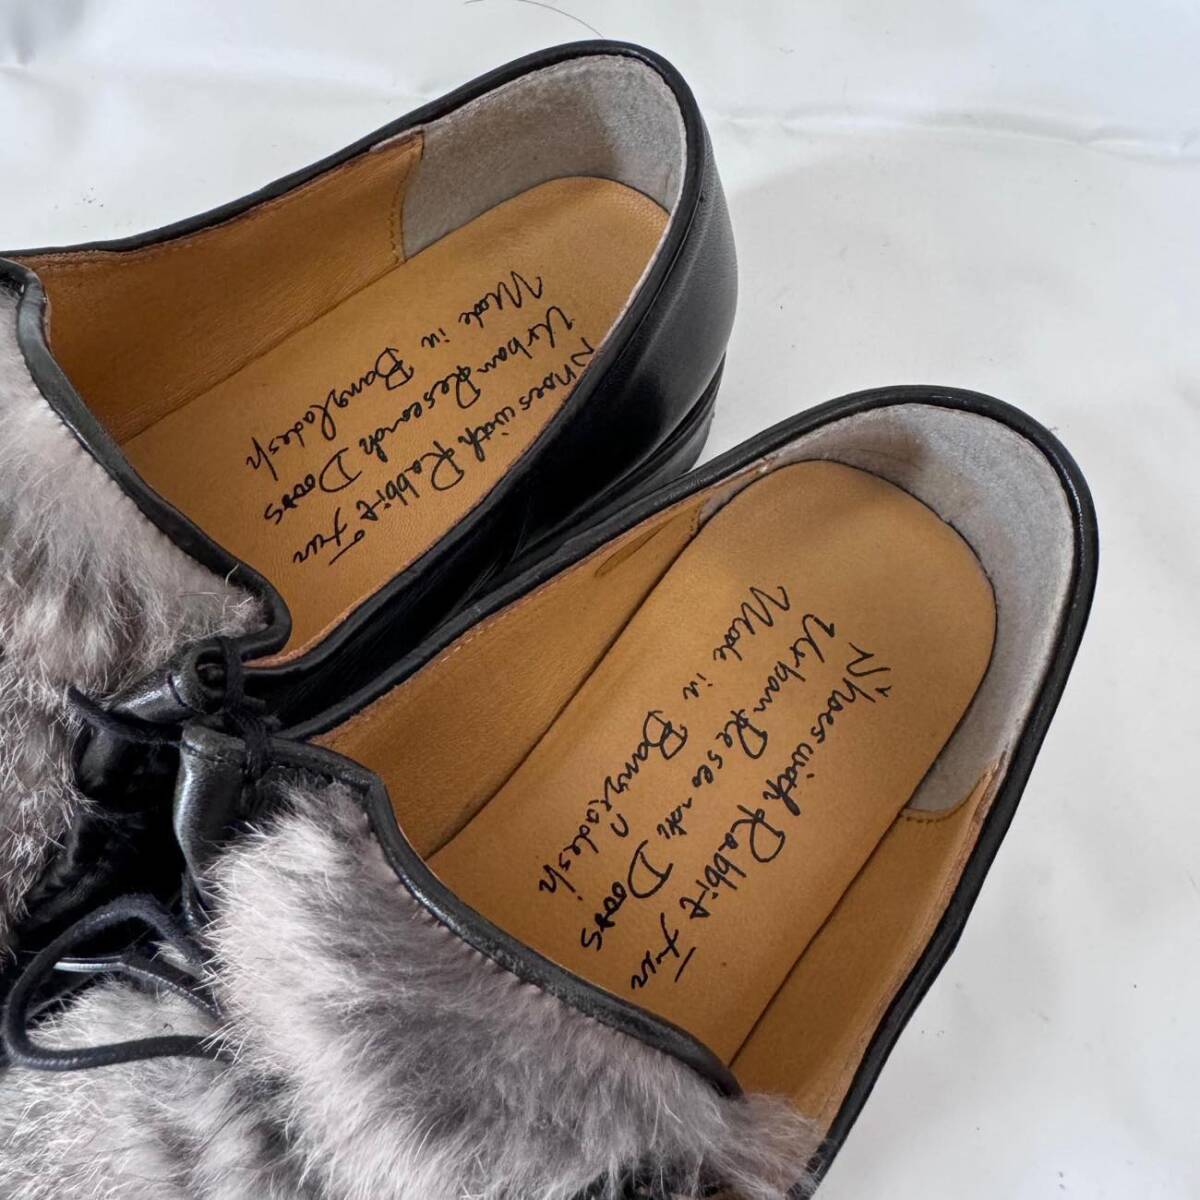 Shoes with Rabbit Fur
Urban Research Doors
Made in Bangladesh
Shoes with Rabbit Fur
Urban Research Doors
Made in Bangladesh